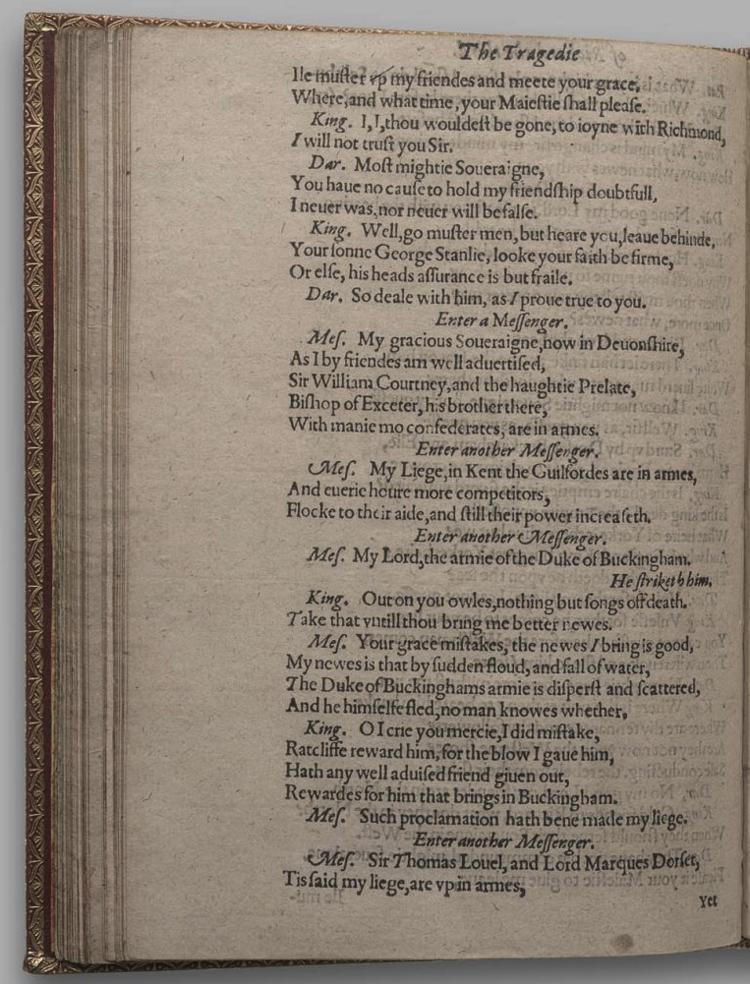 The Tragedie
Ile muſter vp my friendes and meete your grace,
Where, and what time, your Maieſtie ſhall pleaſe.
King. I, I, thou wouldeſt be gone, to ioyne with Richmond,
I will not truſt you Sir.
Dar. Moſt mightie Soueraigne,
You haue no cauſe to hold my friendſhip doubtfull,
I neuer was, nor neuer will be falſe.
King. Well, go muſter men, but heare you, leaue behinde,
Your ſonne George Stanlie, looke your faith be firme,
Or elſe, his heads aſſurance is but fraile.
Dar. So deale with him, as I proue true to you.
Enter a Meſſenger.
Meſ. My gracious Soueraigne, now in Deuonſhire,
As I by friendes am well aduertiſed,
Sir William Courtney, and the haughtie Prelate,
Biſhop of Exceter, his brother there,
With manie mo confederates, are in armes.
Enter another Meſſenger.
Meſ. My Liege, in Kent the Guilfordes are in armes,
And euerie houre more competitors,
Flocke to their aide, and ſtill their power increaſeth.
Enter another Meſſenger.
Meſ. My Lord, the armie of the Duke of Buckingham.
He ſtriketh him.
King. Out on you owles, nothing but ſongs off death.
Take that vntill thou bring me better newes.
Meſ. Your grace miſtakes, the newes I bring is good,
My newes is that by ſudden floud, and fall of water,
The Duke of Buckinghams armie is diſperſt and ſcattered,
And he himſelfe fled, no man knowes whether,
King. O I crie you mercie, I did miſtake,
Ratcliffe reward him, for the blow I gaue him,
Hath any well aduiſed friend giuen out,
Rewardes for him that brings in Buckingham.
Meſ. Such proclamation hath bene made my liege.
Enter another Meſſenger.
Meſ. Sir Thomas Louel, and Lord Marques Dorſet,
Tis ſaid my liege, are vp in armes,
Yet